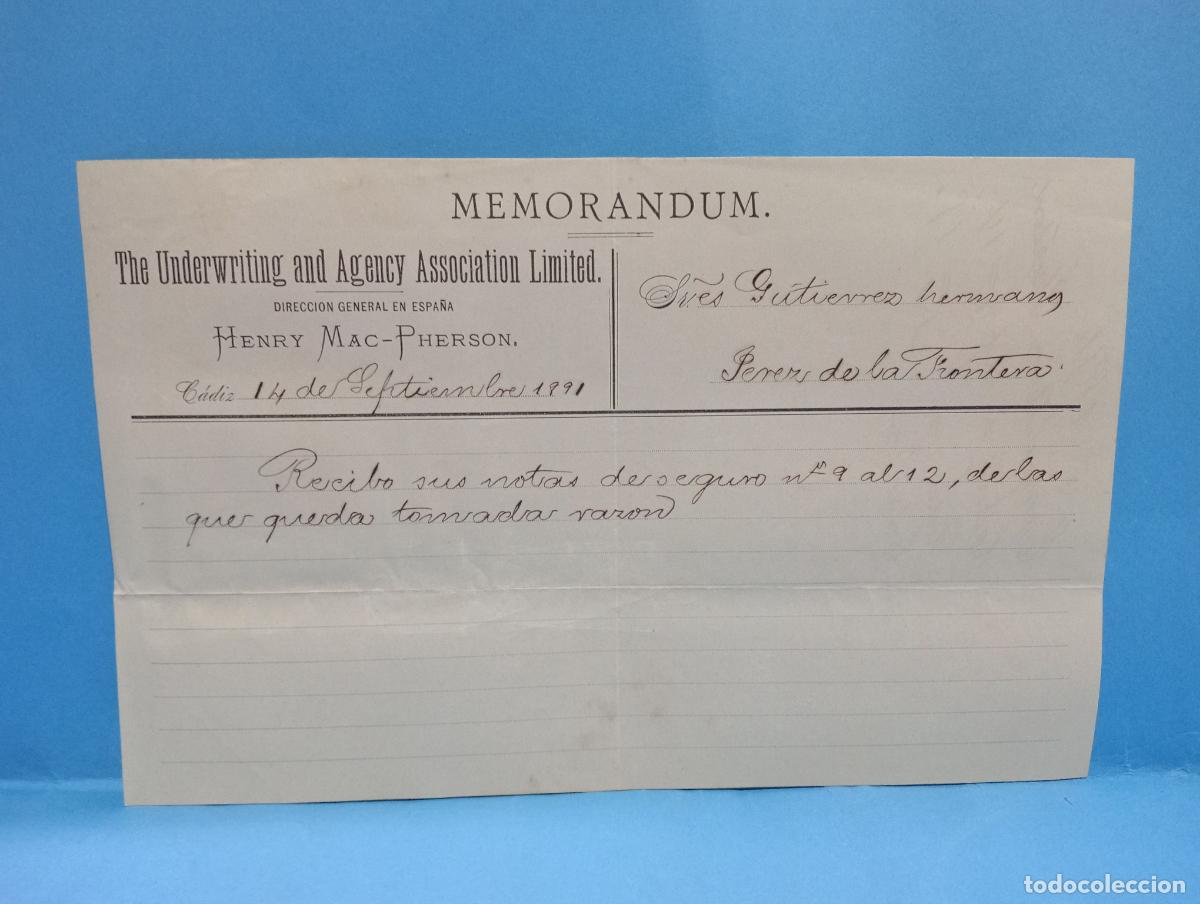 MEMORANDUM.
The Underwriting and Agency Association Limited.
DIRECCION GENERAL EN ESPAÑA
HENRY MAC-PHERSON.
Cádiz 14 de Septiembre 1891
Sres Gutierrez hermanos
Jerez de la Frontera.
Recibo sus notas de seguro nos 9 al 12, de las
que queda tomada razon
todocoleccion